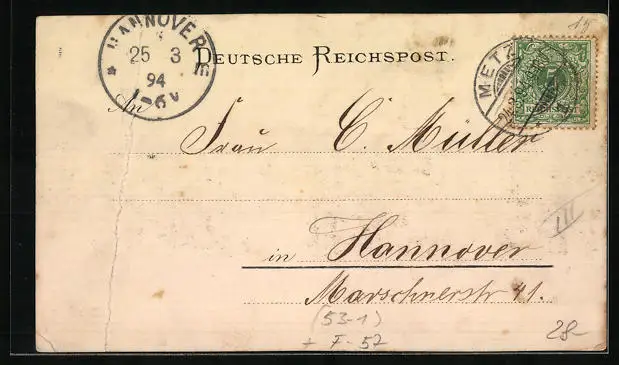 HANNOVER
25 3
94
DEUTSCHE REICHSPOST.
METZ
REICHSPOST
An
Frau C. Müller
in Hannover
Marschnerstr 41.
(53-1)
+ F-57
28-
III